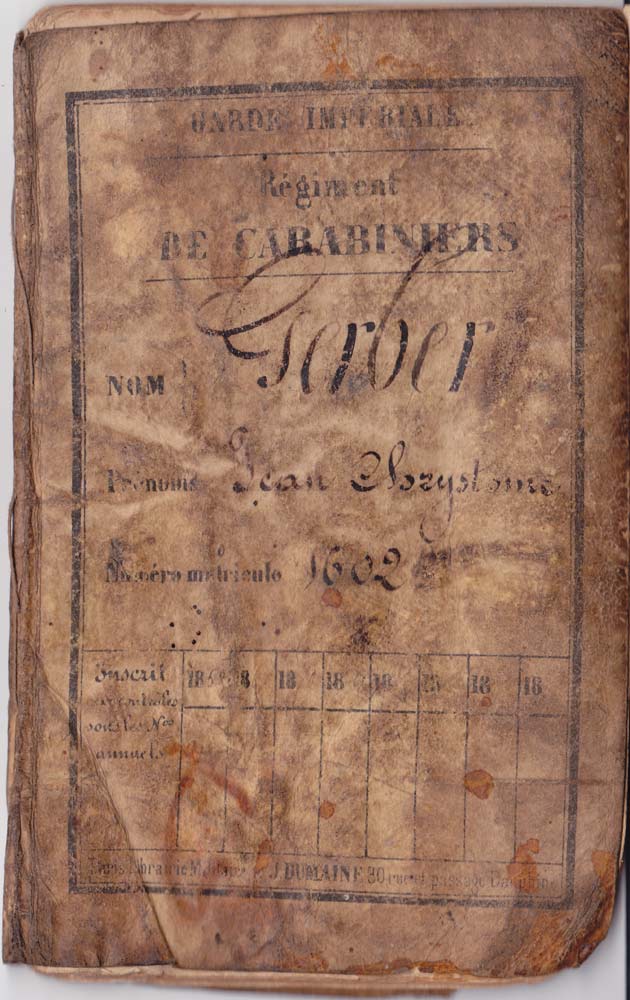 GARDE IMPÉRIALE
Régiment
DE CARABINIERS
NOM Gerber
Prénoms Jean Chrystome
Numéro matricule 1602
Inscrit 18 18 18 18 18 18 18 18
aux contrôles
sous les Nos
annuels
Paris Librairie Militaire J. DUMAINE 30 rue et passage Dauphine